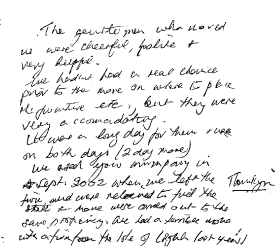 The gentlemen who moved
us were cheerful, polite &
very helpful.
We hadn't had a real chance
prior to the move on where to place
the furniture etc, but they were
very accomodating.
It was a long day for them & us
on both days (2 day move)
We used your company in
Sept. 2002 when we left the
and were returned to find the
move were moved out to the
same property. We had a terrible move
with a firm from the Isle of Wight last year!
Thankyou